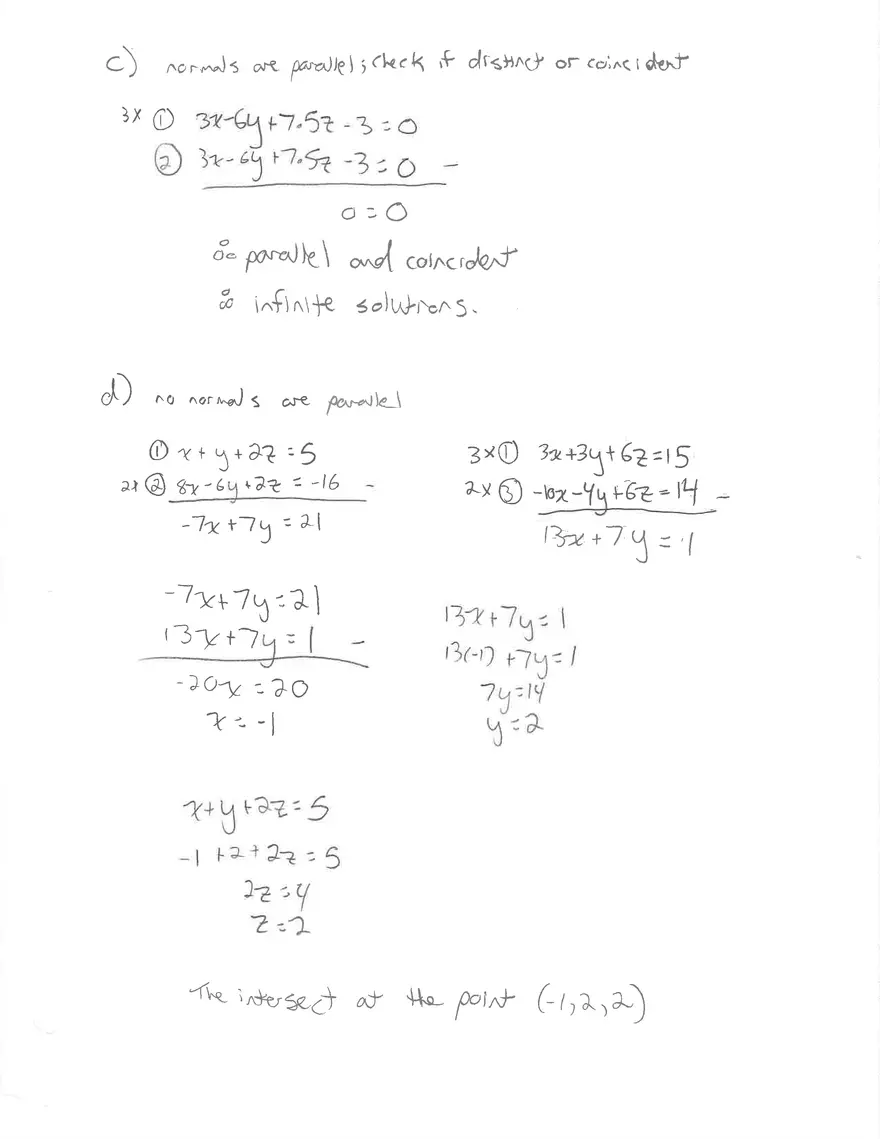 c) normals are parallel; check if distinct or coincident
3x ① 3x-6y+7.5z-3=0
② 3x-6y+7.5z-3=0 -
0=0
∴ parallel and coincident
∴ infinite solutions.
d) no normals are parallel
① x+y+2z=5
2x ② 8x-6y+2z=-16 -
-7x+7y=21
3x① 3x+3y+6z=15
2x③ -10x-4y+6z=14 -
13x+7y=1
-7x+7y=21
13x+7y=1 -
-20x=20
x=-1
13x+7y=1
13(-1)+7y=1
7y=14
y=2
x+y+2z=5
-1+2+2z=5
2z=4
z=2
The intersect at the point (-1,2,2)